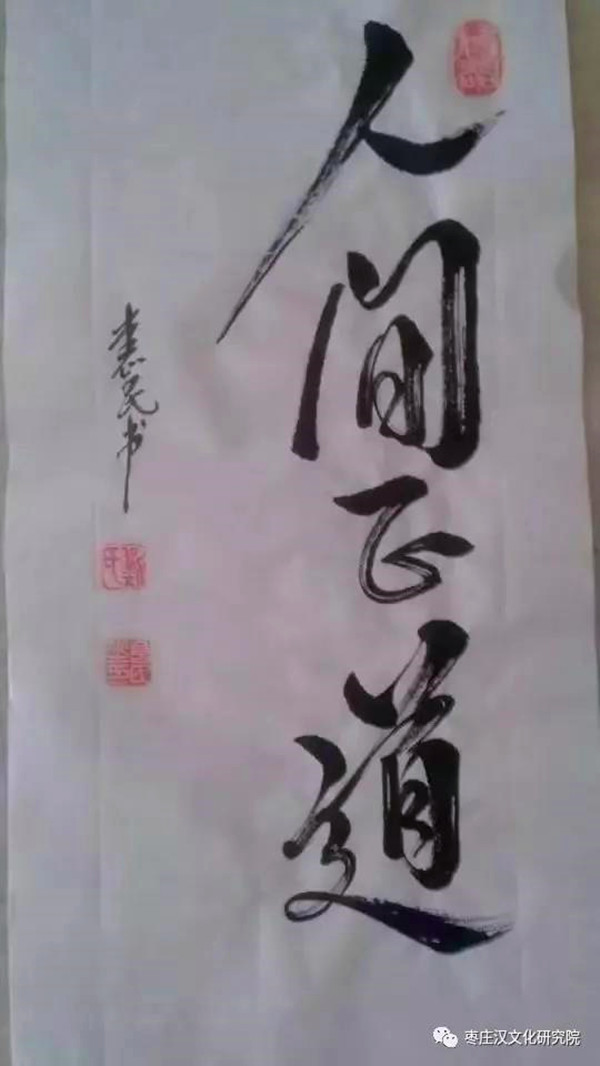 人间正道
惠民书
枣庄汉文化研究院